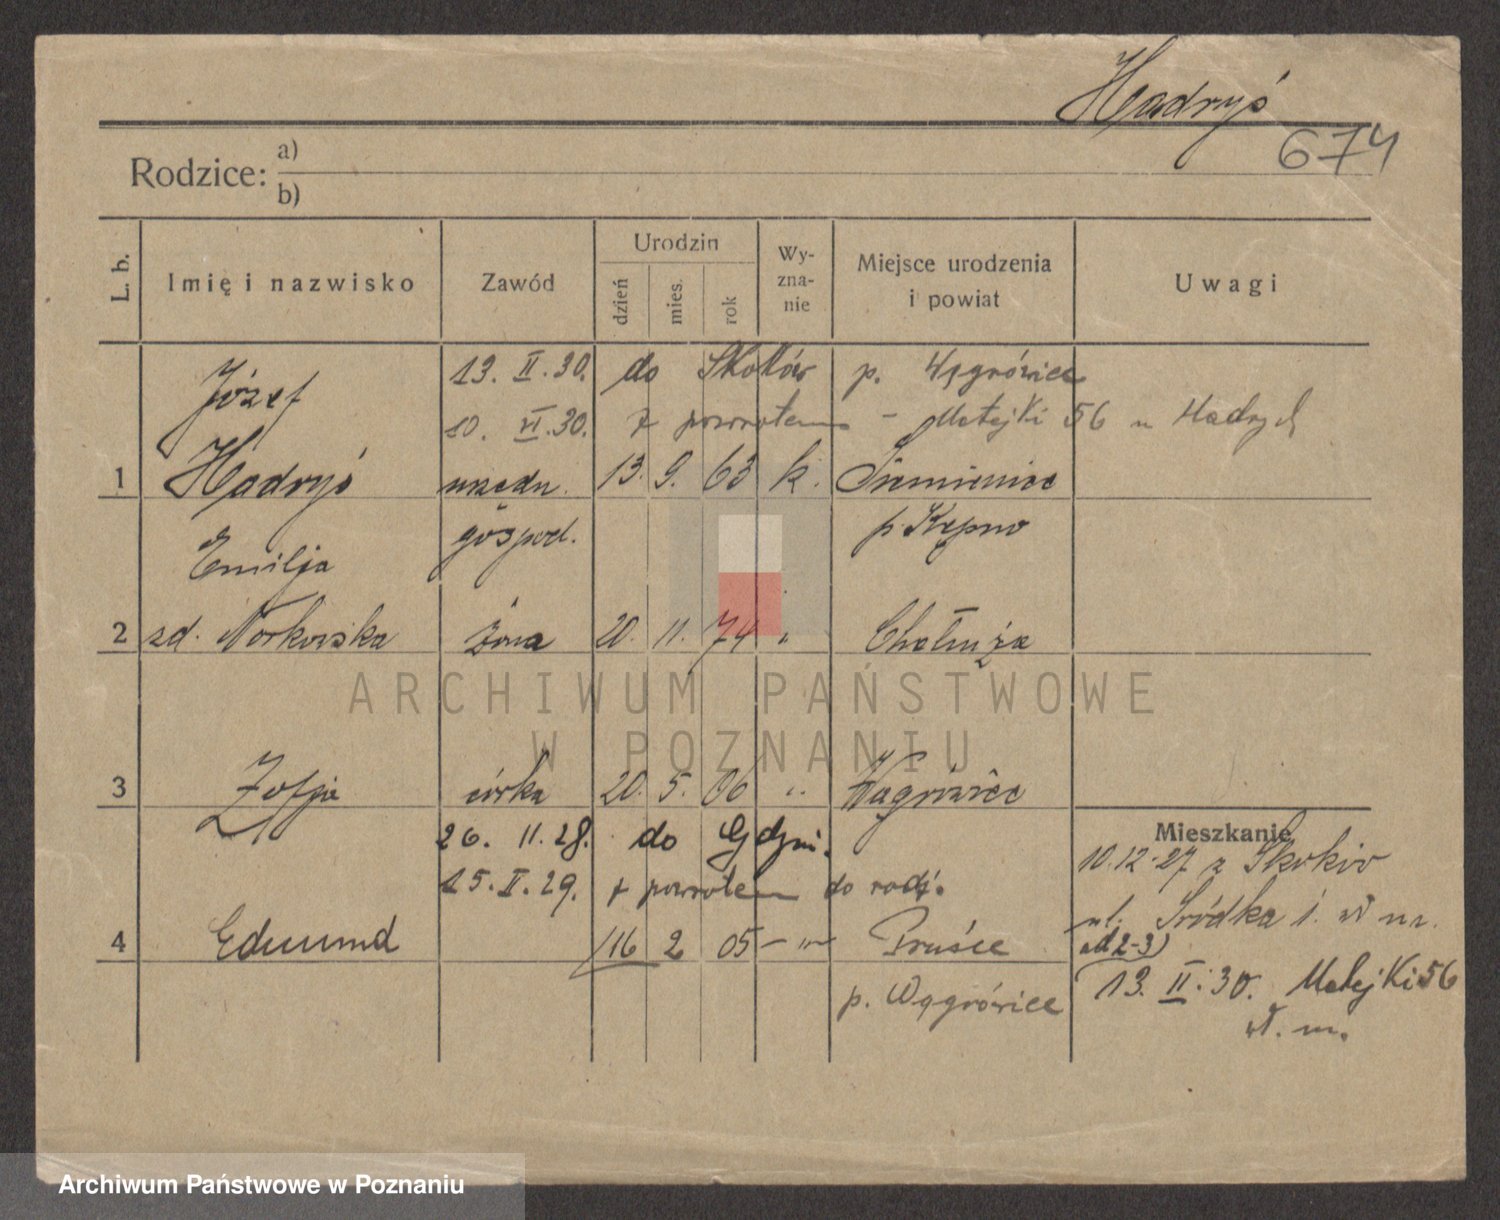 Hadryś
674
Rodzice: a)
b)
L. b. Imię i nazwisko Zawód Urodzin dzień mies. rok Wy-zna-nie Miejsce urodzenia i powiat Uwagi
Józef 13. II. 30. do Skoków p. Wągrówiec
10. VI. 30. z powrotem - Matejki 56 u Hadryś
1 Hadryś urzędn. 13. 9. 63 k. Siemieniec
gospod. p. Kępno
Emilja
2 zd. Norkowska żona 20. 11. 74 " Chełmża
3 Zofja córka 20. 5. 06 " Wągrówiec
26. 11. 28. do Gdyni.
15. II. 29. z powrotem do rodz.
4 Edmund 16 2 05 - " - Pruśce
p. Wągrówiec
Mieszkanie
10.12.27 z Skoków
ul. Śródka 1. w m.
ad 2-3)
13. II. 30. Matejki 56
w. m.
ARCHIWUM PAŃSTWOWE
W POZNANIU
Archiwum Państwowe w Poznaniu